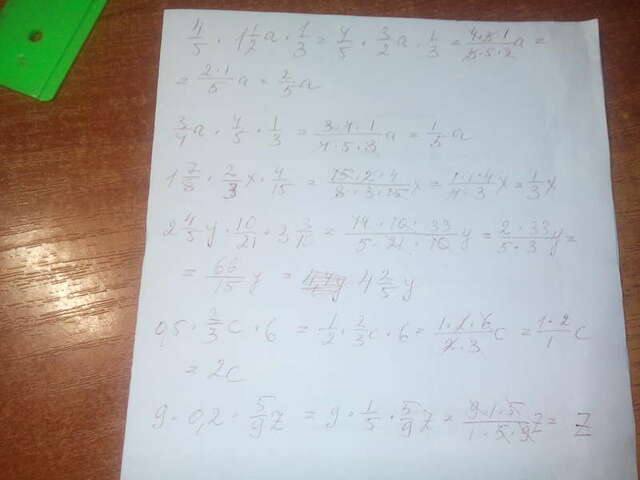 4/5 · 1 1/2 a · 1/3 = 4/5 · 3/2 a · 1/3 = 4·3·1/5·3·2 a =
= 2·1/5 a = 2/5 a
3/4 a · 4/5 · 1/3 = 3·4·1/4·5·3 a = 1/5 a
1 7/8 · 2/3 x · 4/15 = 15·2·4/8·3·15 x = 1·1·4/4·3 x = 1/3 x
2 4/5 y · 10/21 · 3 3/10 = 14·10·33/5·21·10 y = 2·33/5·3 y =
= 66/15 y = 4 2/5 y
0,5 · 2/3 c · 6 = 1/2 · 2/3 c · 6 = 1·2·6/2·3 c = 1·2/1 c
= 2c
9 · 0,2 · 5/9 z = 9 · 1/5 · 5/9 z = 9·1·5/1·5·9 z = z